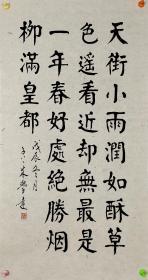 天街小雨潤如酥草
色遙看近却無最是
一年春好處絕勝烟
柳滿皇都
戊辰冬月